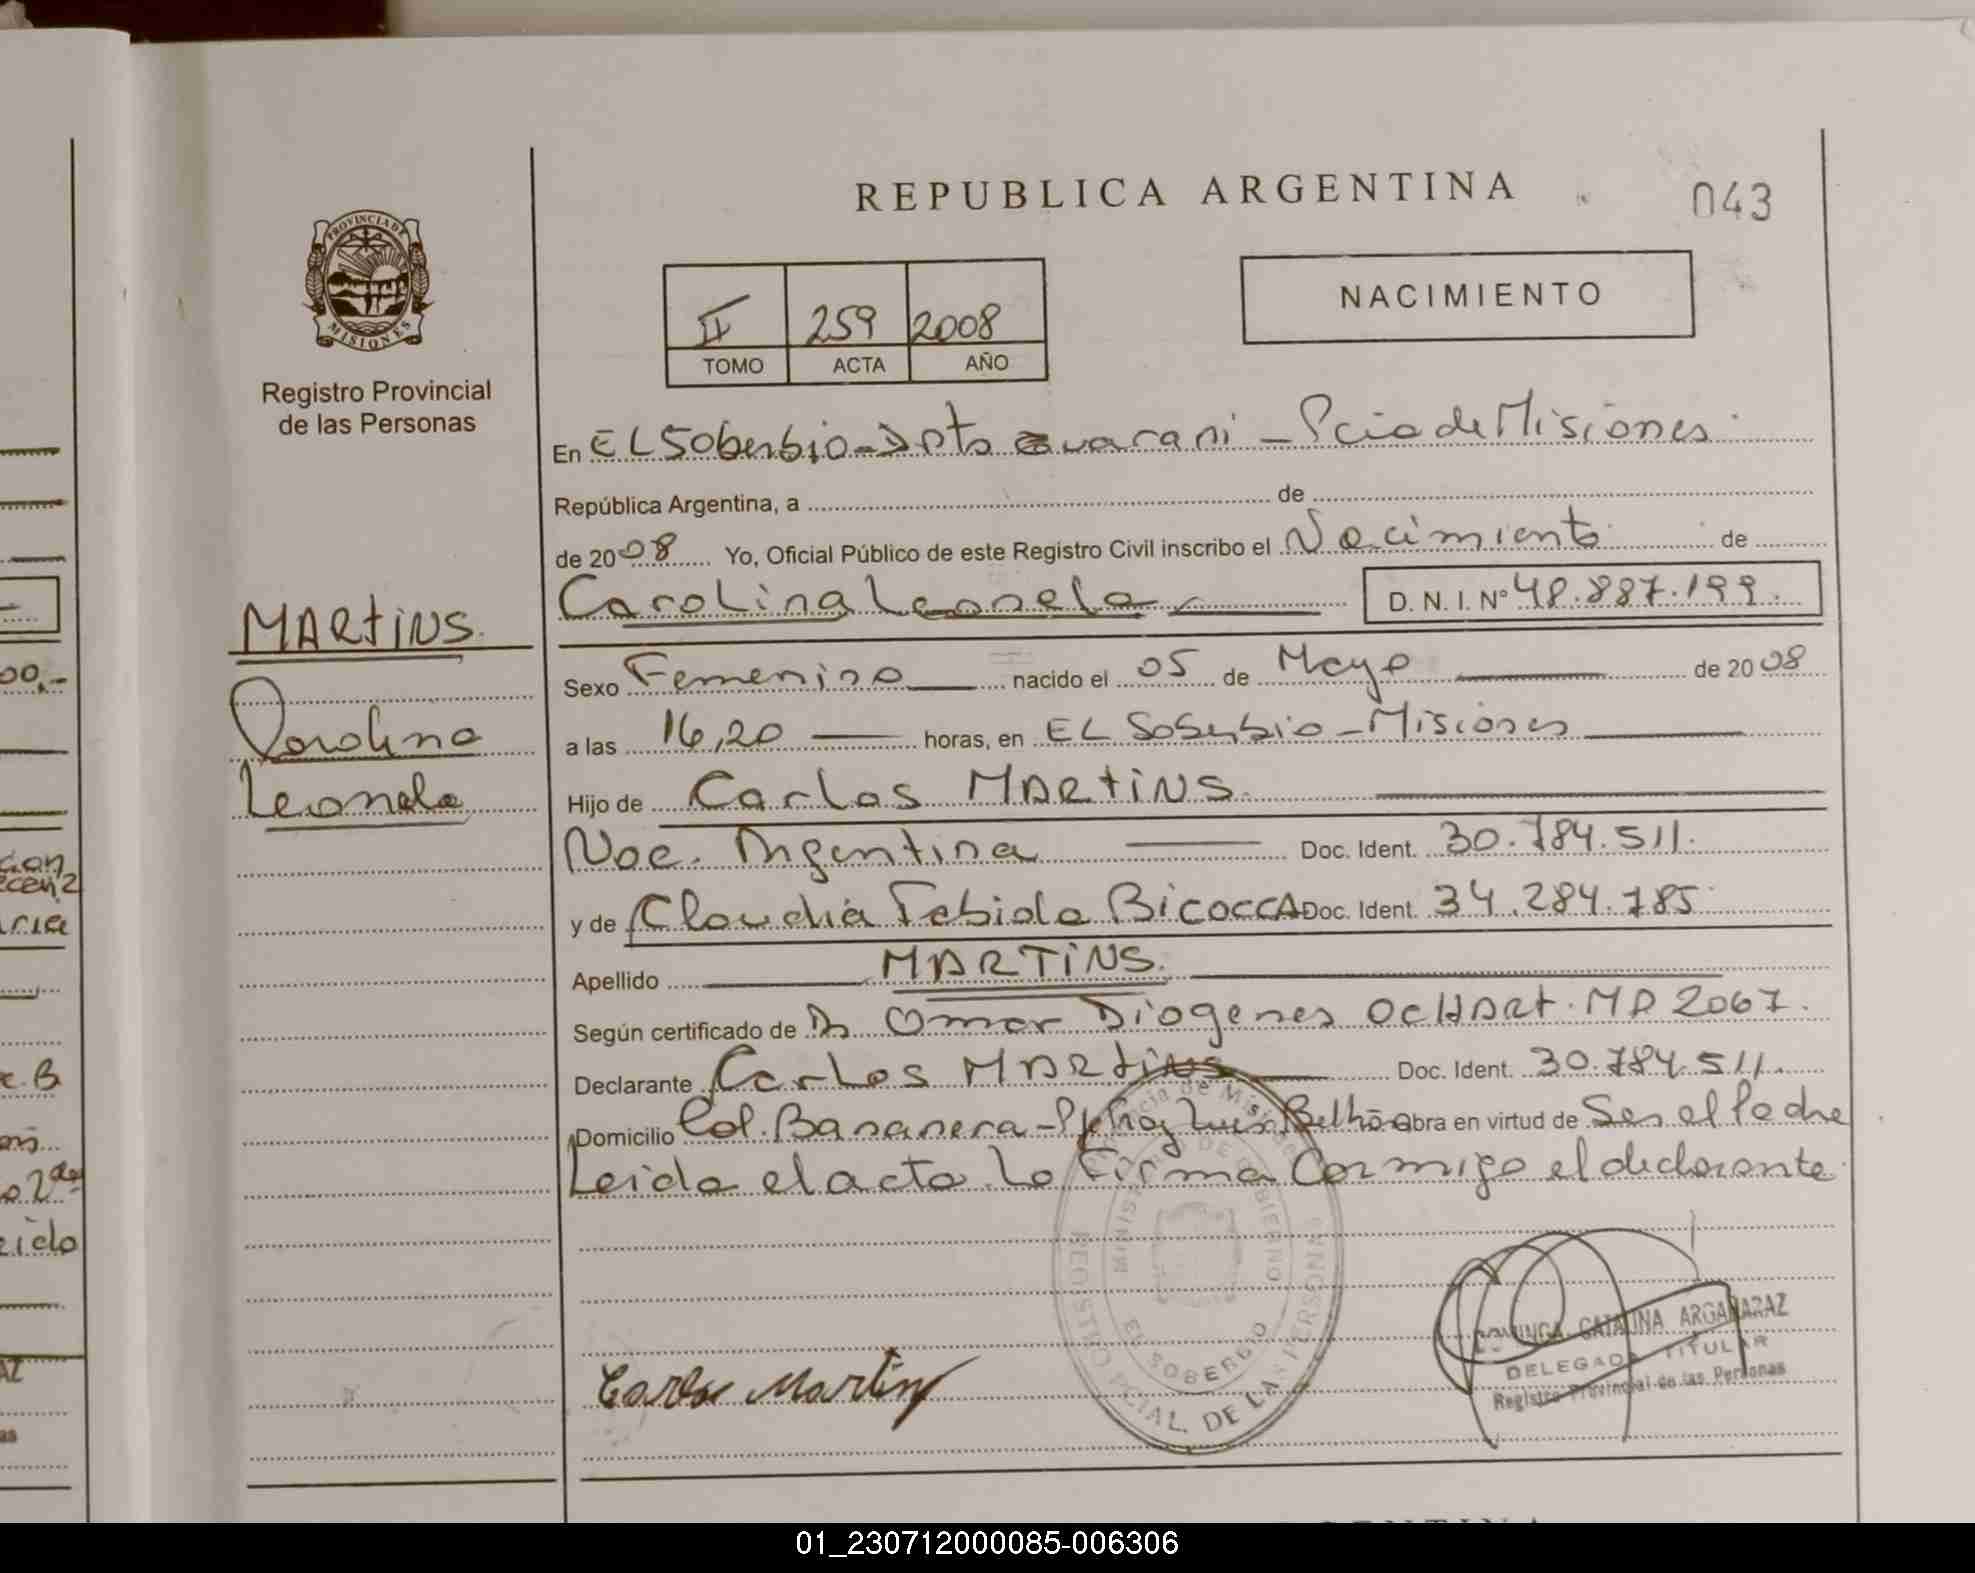 REPUBLICA ARGENTINA
043
PROVINCIA DE
MISIONES
Registro Provincial
de las Personas
NACIMIENTO
II 259 2008
TOMO ACTA AÑO
En EL Soberbio - Dpto Guarani - Pcia de Misiones
República Argentina, a de
de 2008 Yo, Oficial Público de este Registro Civil inscribo el Nacimiento de
Carolina Leonela D. N. I. Nº 48.887.199.
MARtiNS.
Carolina
Leonela
Sexo Femenino nacido el 05 de Mayo de 2008
a las 16,20 horas, en EL Soberbio - Misiones
Hijo de Carlos MARtiNS.
Nac. Argentina Doc. Ident. 30.784.511.
y de Claudia Fabiola BICOCCA Doc. Ident. 34.284.785
Apellido MARTiNS.
Según certificado de Dr Omar Diogenes OCHARt. MP 2067.
Declarante Carlos MARtiNS Doc. Ident. 30.784.511.
Domicilio Col. Bananera - Luis Belhão obra en virtud de Ser el Padre
Leida el acta Lo Firma Conmigo el declarante
Carlos Martins
MINISTERIO DE GOBIERNO
EL SOBERBIO
REGISTRO PCIAL. DE LAS PERSONAS
CATALINA ARGAÑARAZ
DELEGADA TITULAR
Registro Provincial de las Personas
01_230712000085-006306